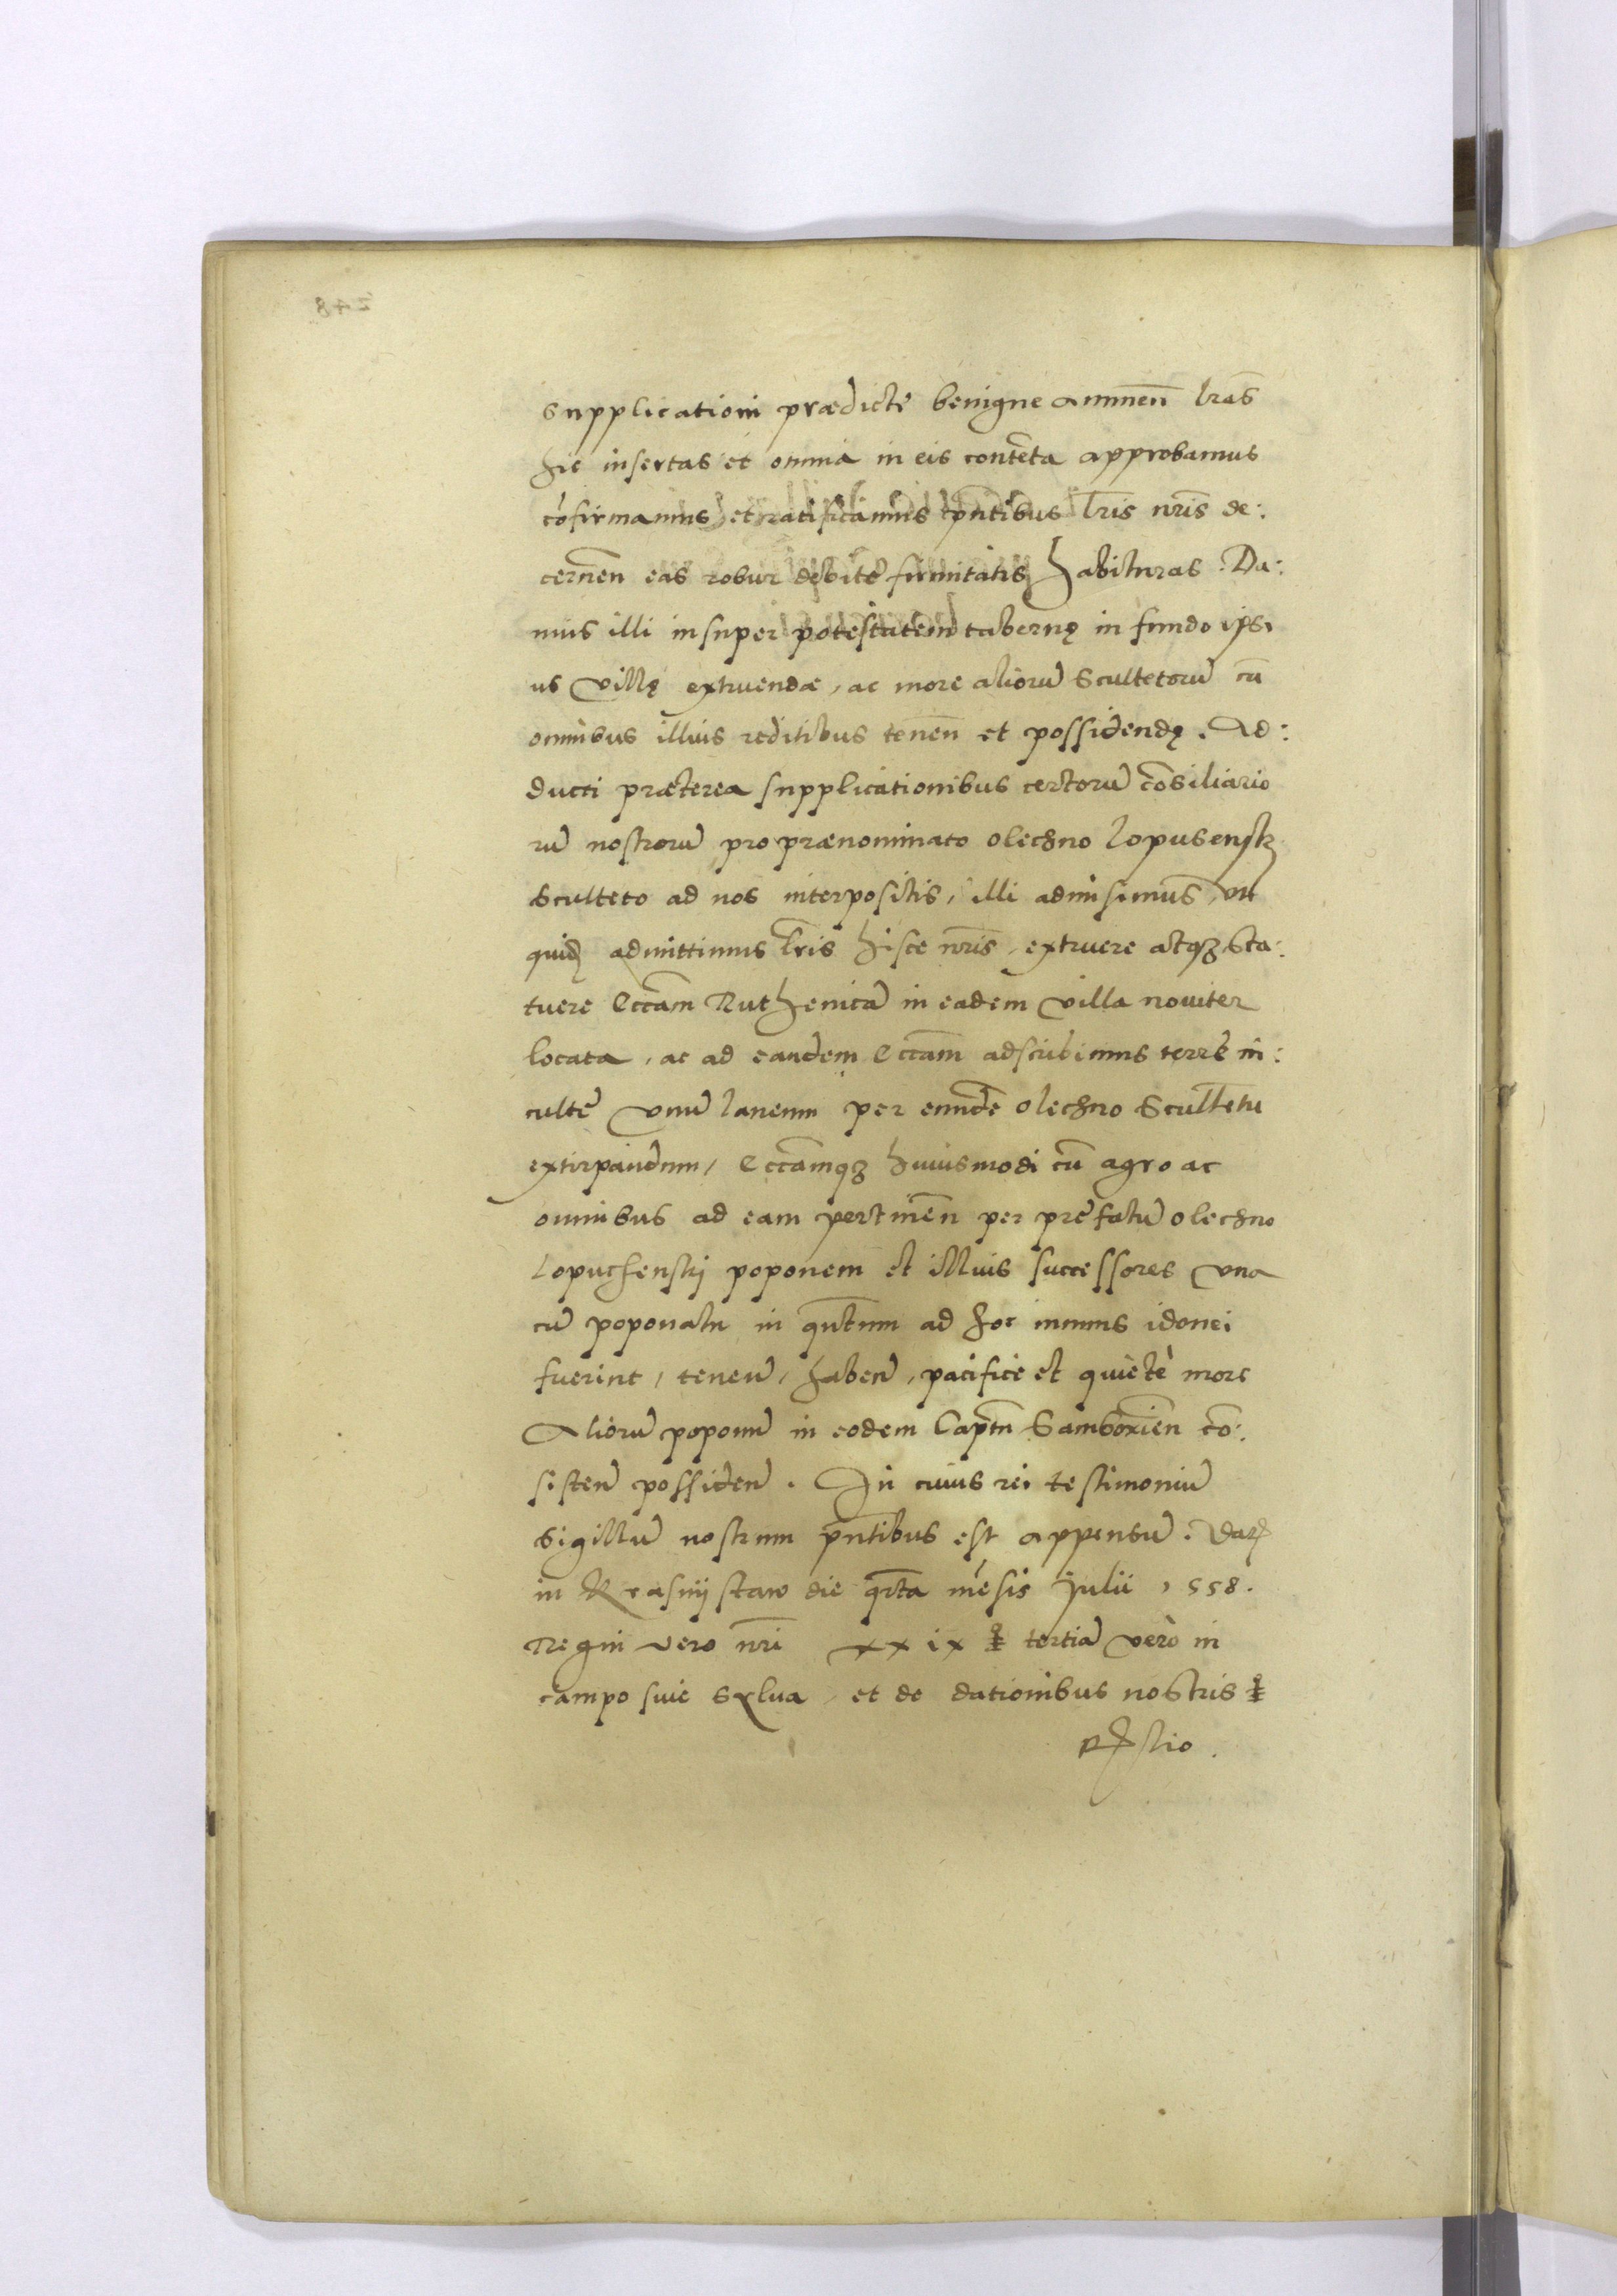 supplicationi prædictę benigne annuen̄ lras̄
hic insertas et omnia in eis contēta approbamus
cōfirmamus et ratificamus pn̄tibus Lris̄ nr̄is de:
cernen̄ eas robur debitę firmitatis habituras. Da:
mus illi insuper potestatem tabernę in fundo ipsi
us villę extruendæ, ac more aliorū Scultetorū cū
omnibus illius reditibus tenen̄ et possidendę. Ad:
ducti præterea supplicationibus certorū cōsiliario
rū nostrorū pro prænominato olechno Lopusensky
Sculteto ad nos interpositis, illi admisimus, uti
quidē admittimus Lr̄is hisce nr̄is, extruere atqȝ Sta:
tuere Eccām Ruthenicā in eadem villa noviter
locata, ac ad eandem Eccām adscribimus terrę in:
cultę vnū laneum per eundē olechno Scultetū
extirpandum, Eccāmqȝ huiusmodi cū agro ac
omnibus ad eam pertinēn per pręfatū olechno
Lopuchenskij poponem et illius successores vna
cū poponatu in qn̄tum ad hoc munus idonei
fuerint, tenen̄, haben̄, pacifice et quietè more
Aliorū poponū in eodem Captn̄ Samborien̄ cō:
sisten̄ possiden̄. In cuius rei testimoniū
Sigillū nostrum pn̄tibus est appensū. Dat
in Krasnijstaw die qr̄ta mēsis Julii 1558.
Regni vero nr̄i xxix tertiā verò in
campo sive sylva, et de dationibus nostris